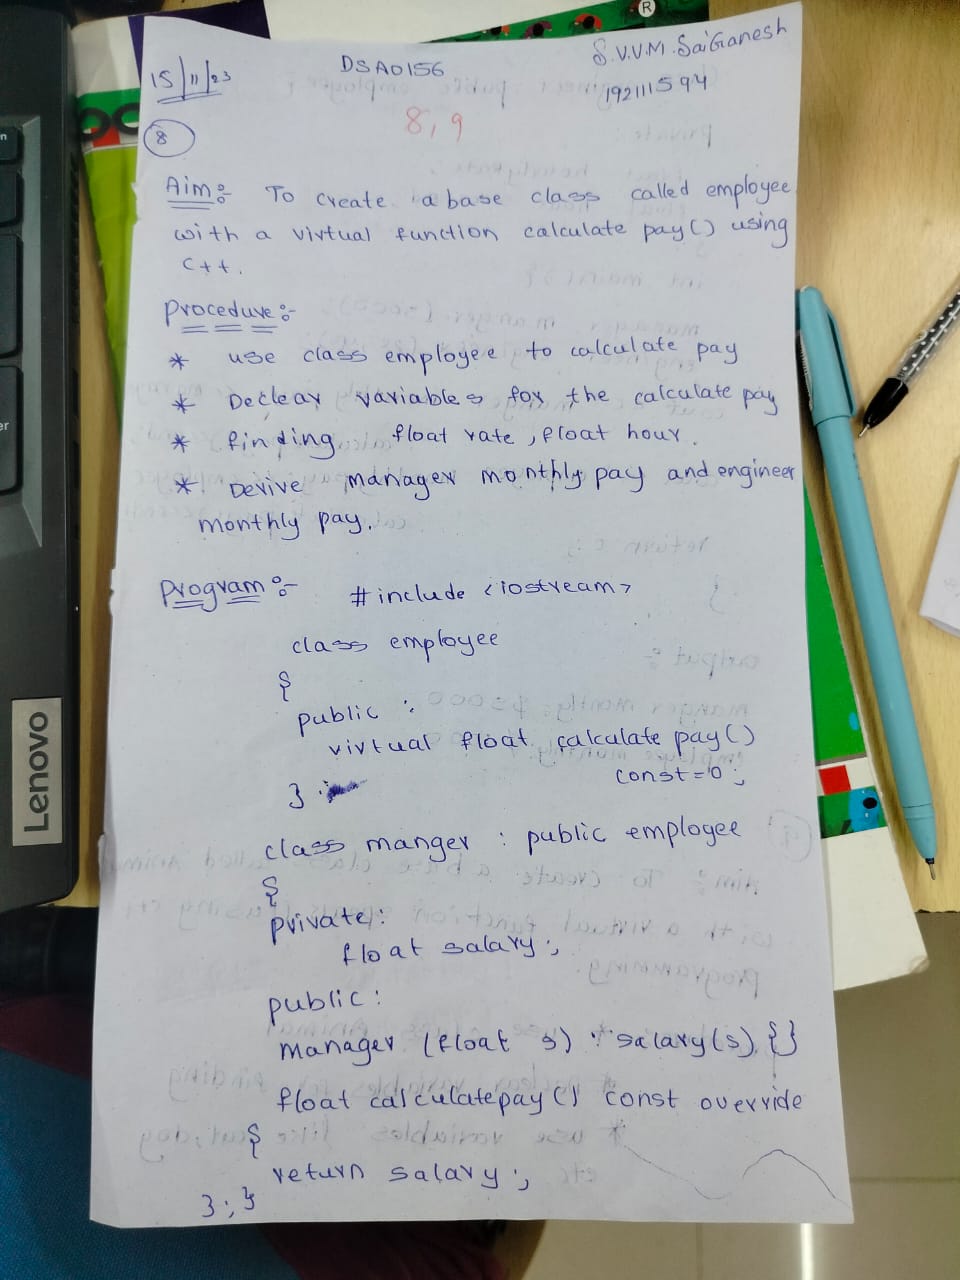 15/11/23
DSA0156
S.V.V.M.SaiGanesh
192111594
8,9
8
Aim:- To create a base class called employee
with a virtual function calculate pay() using
C++.
Procedure:-
* use class employee to calculate pay
* Declear variables for the calculate pay
* finding float rate, float hour.
* Derive manager monthly pay and engineer
monthly pay.
Program:- #include <iostream>
class employee
{
public :
virtual float calculate pay()
const=0;
}
class manger : public employee
{
private:
float salary;
public:
manager (float s) : salary(s) {}
float calculatepay() const override
{
return salary;
}; }
Lenovo
R